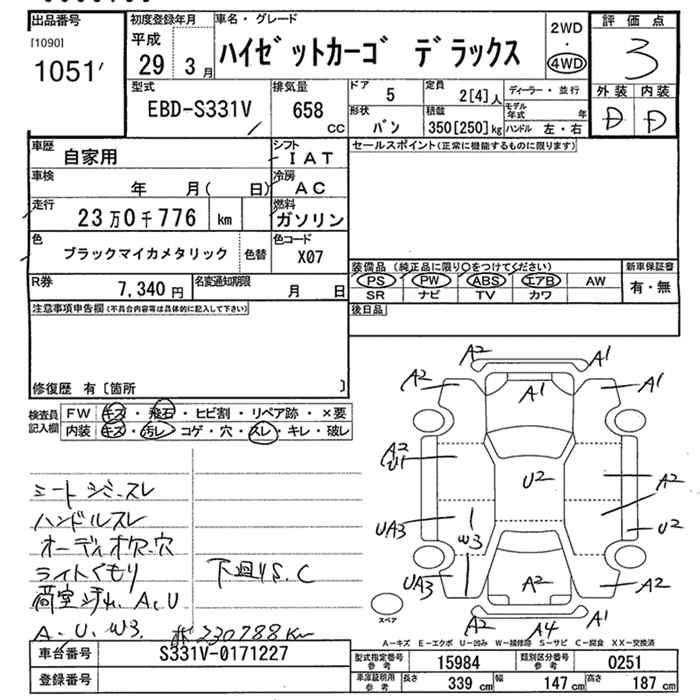 出品番号
[1090]
1051'
初度登録年月
平成
29 3月
車名・グレード
ハイゼットカーゴ デラックス
2WD
・
4WD
評価点
3
外装 内装
D D
型式
EBD-S331V
排気量
658
cc
ドア
5
定員
2[4]人
ディーラー・並行
形状
バン
積載
350[250]kg
モデル年式 年
ハンドル 左・右
車歴
自家用
シフト
IAT
セールスポイント(正常に機能するものに限ります)
車検
年 月( 日)
冷房
AC
走行
23万0千776 km
燃料
ガソリン
色
ブラックマイカメタリック
色替
色コード
X07
装備品(純正品に限り○をつけてください)
PS PW ABS エアB AW
SR ナビ TV カワ
新車保証書
有・無
R券
7,340円
名変通知期限
月 日
後日品
注意事項申告欄(不具合内容等は具体的に記入して下さい)
修復歴 有[箇所 ]
検査員
記入欄
FW キズ・飛石・ヒビ割・リペア跡・×要
内装 キズ・汚レ・コゲ・穴・スレ・キレ・破レ
シートシミ・スレ
ハンドルスレ
オーディオ欠・穴
ライトくもり
下廻りS.C
荷室汚れ、A、U
A、U、W3
230788Km
A2 A1
A2 A1 A1
A2
U1
U2
A2
UA3
W3
U2
UA3
A2
A2
A4
A1
スペア
A-キズ E-エクボ U-凹み W-補修跡 S-サビ C-腐食 XX-交換済
車台番号
S331V-0171227
登録番号
型式指定番号
参考
15984
類別区分番号
参考
0251
車庫証明用
参考
長さ 339 cm 幅 147 cm 高さ 187 cm